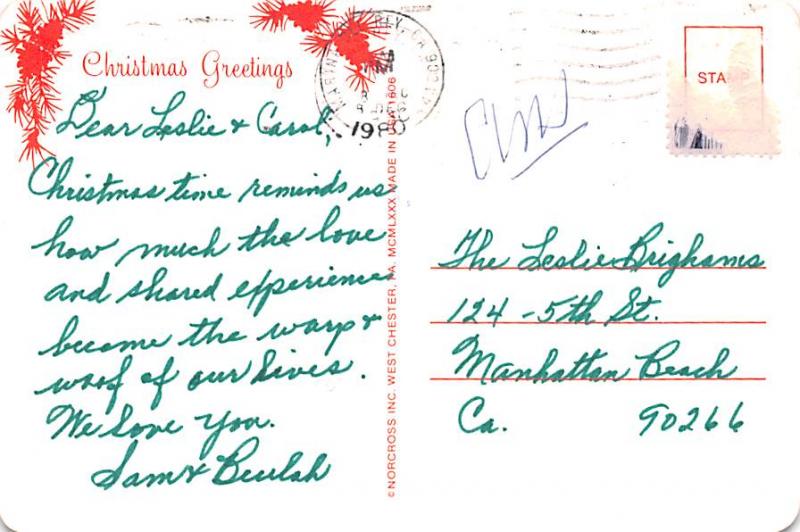 Christmas Greetings
Dear Leslie & Carol,
Christmas time reminds us
how much the love
and shared experiences
become the warp &
woof of our lives.
We love you.
Sam & Beulah
© NORCROSS INC. WEST CHESTER, PA. MCMLXXX MADE IN
1606
1980
STAMP
The Leslie Brighams
124 - 5th St.
Manhattan Beach
Ca. 90266